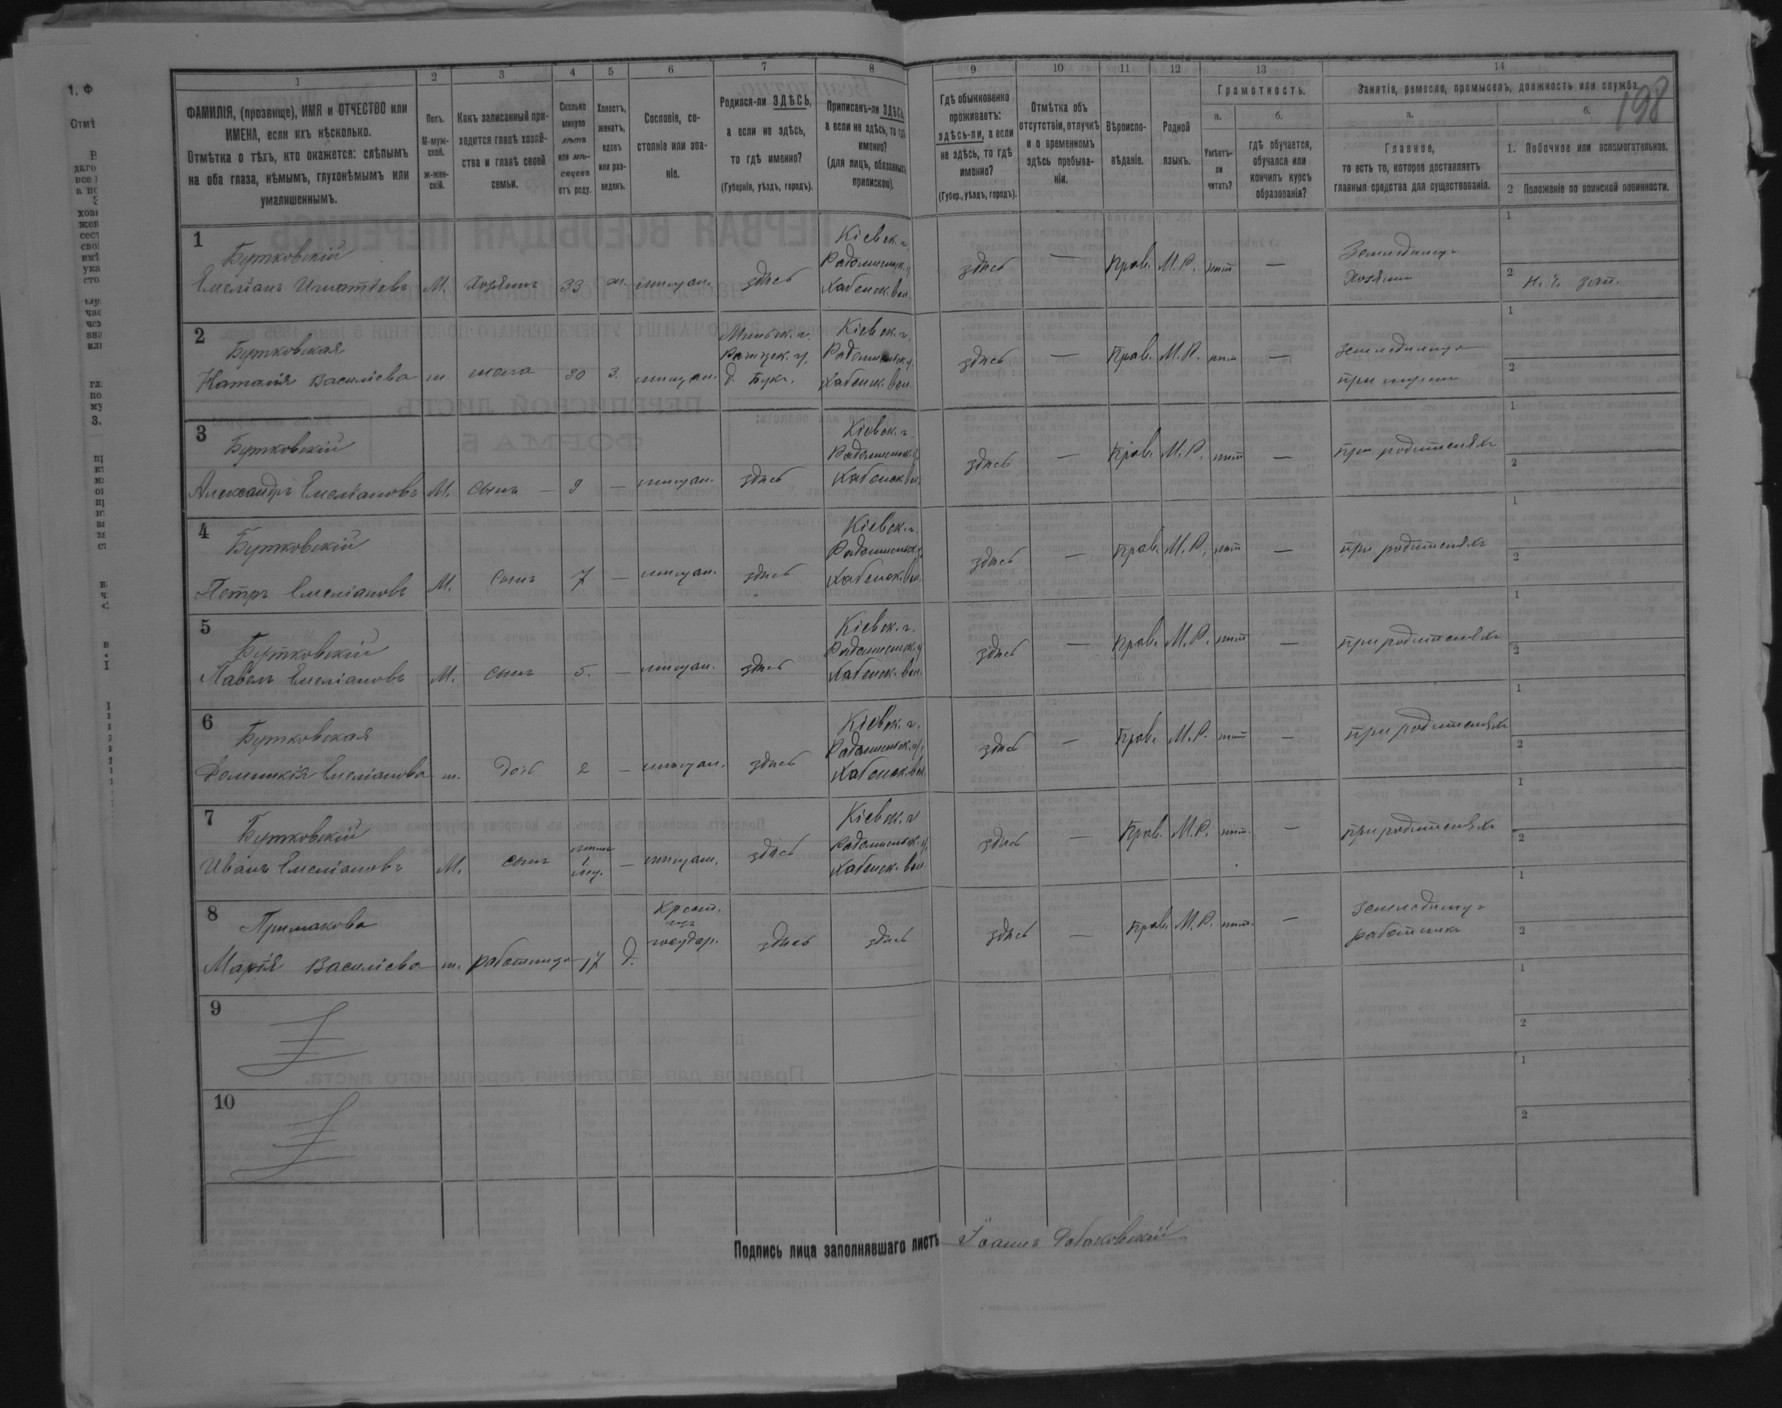 1. Ф
198
1 2 3 4 5 6 7 8 9 10 11 12 13 14
ФАМИЛІЯ, (прозвище), ИМЯ и ОТЧЕСТВО или
ИМЕНА, если ихъ нѣсколько.
Отмѣтка о тѣхъ, кто окажется: слѣпымъ
на оба глаза, нѣмымъ, глухонѣмымъ или
умалишеннымъ.
Полъ.
М-муж-
ской.
ж-жен-
скій.
Какъ записанный при-
ходится главѣ хозяй-
ства и главѣ своей
семьи.
Сколько
минуло
лѣтъ
или мѣ-
сяцевъ
отъ роду.
Холостъ,
женатъ,
вдовъ
или раз-
веденъ.
Сословіе, со-
стояніе или зва-
ніе.
Родился-ли ЗДѢСЬ,
а если не здѣсь,
то гдѣ именно?
(Губернія, уѣздъ, городъ).
Приписанъ-ли ЗДѢСЬ,
а если не здѣсь, то гдѣ
именно?
(для лицъ, обязанныхъ
припиской).
Гдѣ обыкновенно
проживаетъ:
здѣсь-ли, а если
не здѣсь, то гдѣ
именно?
(Губер., уѣздъ, городъ).
Отмѣтка объ
отсутствіи, отлучкѣ
и о временномъ
здѣсь пребыва-
ніи.
Вѣроиспо-
вѣданіе.
Родной
языкъ.
Грамотность.
а.
Умѣетъ-
ли
читать?
б.
гдѣ обучается,
обучался или
кончилъ курсъ
образованія?
Занятіе, ремесло, промыселъ, должность или служба.
а.
Главное,
то есть то, которое доставляетъ
главныя средства для существованія.
б.
1. Побочное или вспомогательное.
2 Положеніе по воинской повинности.
1
Бутковскій
Емеліанъ Игнатіевъ М. Хозяинъ 33 ж. мѣщан. здѣсь
Кіевск. г.
Радомысльск. у.
Хабенск. вол.
здѣсь — Прав. М.Р. нѣт —
Земледѣлецъ
Хозяинъ
1
2
2
Бутковская
Наталія Василіева ж жена 30 з. мѣщан.
Минск. г.
Рѣчицк. у.
Кіевск. г.
Радомысльск. у.
Хабенск. вол.
здѣсь — Прав. М.Р. нѣт —
земледѣлецъ
при мужѣ
1
2
3
Бутковскій
Александръ Емеліановъ М. сынъ 9 — мѣщан. здѣсь
Кіевск. г.
Радомысльск. у.
Хабенск. вол.
здѣсь — Прав. М.Р. нѣт —
при родителяхъ
1
2
4
Бутковскій
Петръ Емеліановъ М. сынъ 7 — мѣщан. здѣсь
Кіевск. г.
Радомысльск. у.
Хабенск. вол.
здѣсь — Прав. М.Р. нѣт —
при родителяхъ
1
2
5
Бутковскій
Павелъ Емеліановъ М. сынъ 5. — мѣщан. здѣсь
Кіевск. г.
Радомысльск. у.
Хабенск. вол.
здѣсь — Прав. М.Р. нѣт —
при родителяхъ
1
2
6
Бутковская
Домникія Емеліанова ж. дочь 2 — мѣщан. здѣсь
Кіевск. г.
Радомысльск. у.
Хабенск. вол.
здѣсь — Прав. М.Р. нѣт —
при родителяхъ
1
2
7
Бутковскій
Иванъ Емеліановъ М. сынъ — мѣщан. здѣсь
Кіевск. г.
Радомысльск. у.
Хабенск. вол.
здѣсь — Прав. М.Р. нѣт. —
при родителяхъ
1
2
8
Примакова
Марія Василіева ж. работница 17 д.
Крест.
изъ
государ.
здѣсь здѣсь
здѣсь — Прав. М.Р. нѣт. —
земледѣлецъ
работница
1
2
9
1
2
10
1
2
Подпись лица заполнявшаго листъ